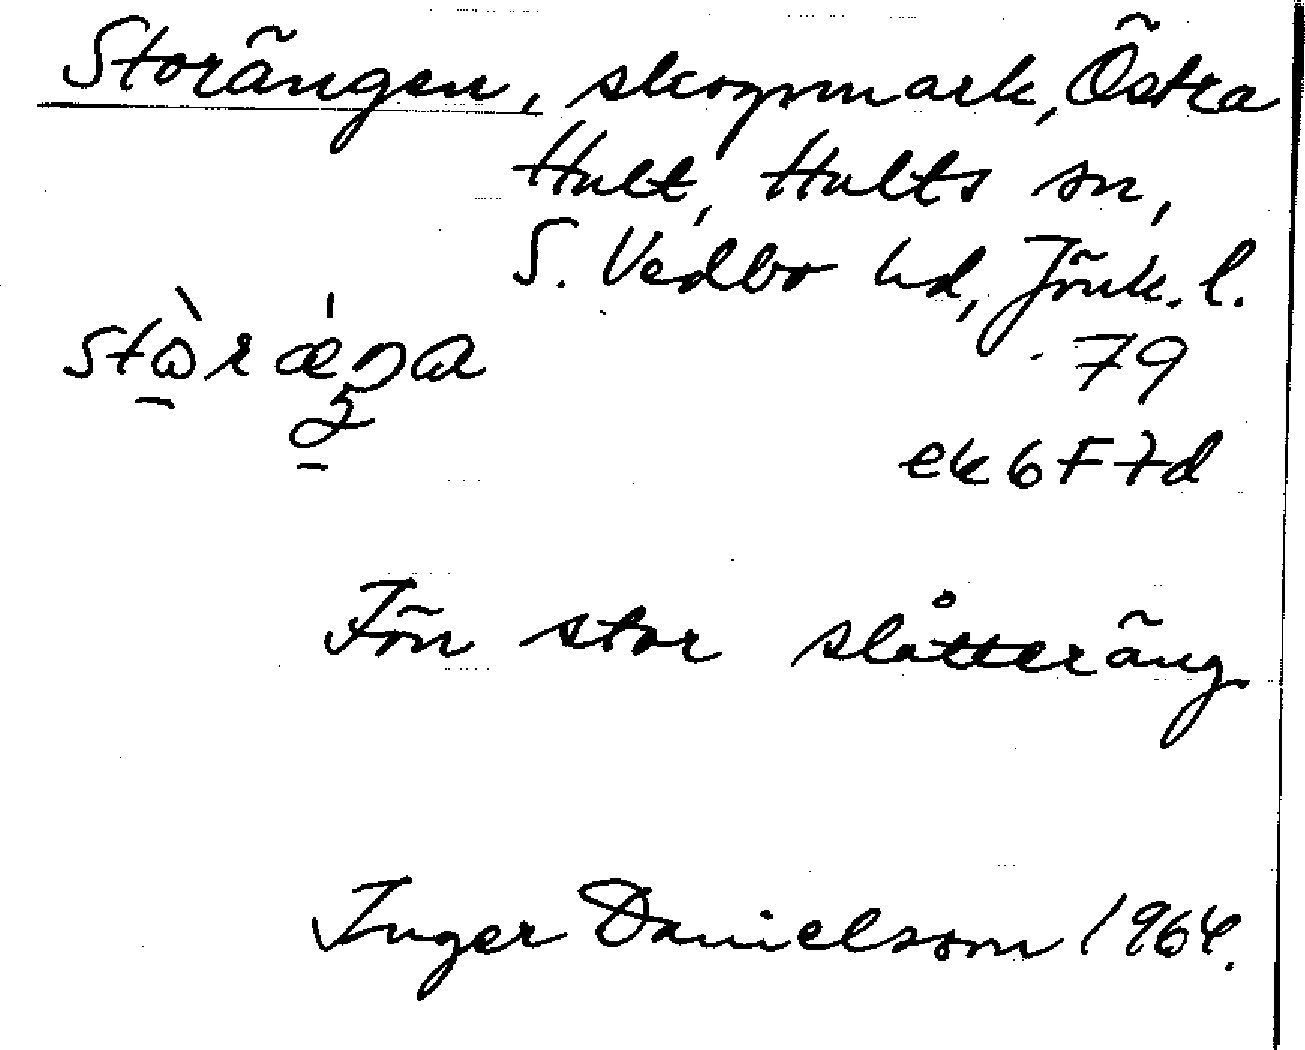 Storängen, skogsmark, Östra
Hult, Hults sn,
S. Vedbo hd, Jönk. l.
79
ek 6 F 7d
Förr stor slåtteräng
Inger Danielsson 1964.